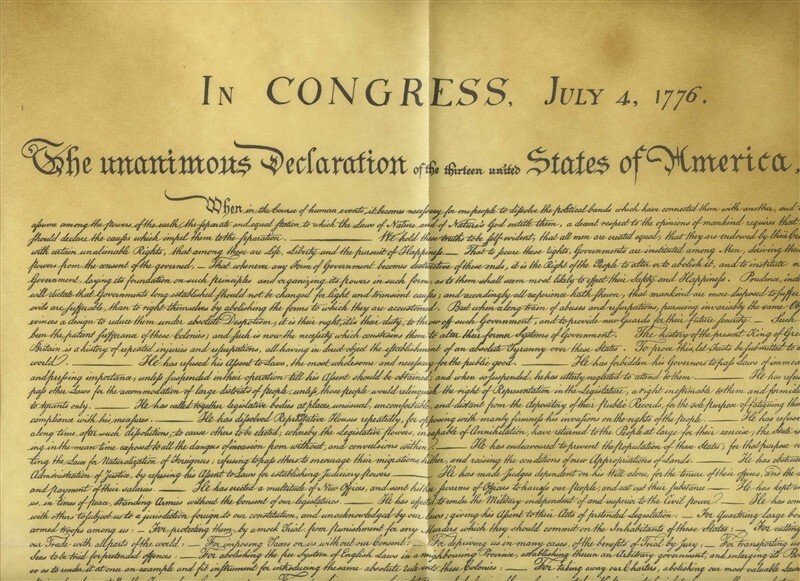 IN CONGRESS, JULY 4, 1776.
The unanimous Declaration of the thirteen united States of America,
When in the Course of human events, it becomes necessary for one people to dissolve the political bands which have connected them with another, and to
assume among the powers of the earth, the separate and equal station to which the Laws of Nature and of Nature's God entitle them, a decent respect to the opinions of mankind requires that
should declare the causes which impel them to the separation. — We hold these truths to be self-evident, that all men are created equal, that they are endowed by their
with certain unalienable Rights, that among these are Life, Liberty and the pursuit of Happiness. — That to secure these rights, Governments are instituted among Men, deriving their
powers from the consent of the governed, — That whenever any Form of Government becomes destructive of these ends, it is the Right of the People to alter or to abolish it, and to institute
Government, laying its foundation on such principles and organizing its powers in such form, as to them shall seem most likely to effect their Safety and Happiness. Prudence,
will dictate that Governments long established should not be changed for light and transient causes; and accordingly all experience hath shewn, that mankind are more disposed to suffer,
evils are sufferable, than to right themselves by abolishing the forms to which they are accustomed. But when a long train of abuses and usurpations, pursuing invariably the same
evinces a design to reduce them under absolute Despotism, it is their right, it is their duty, to throw off such Government, and to provide new Guards for their future security. — Such
been the patient sufferance of these Colonies; and such is now the necessity which constrains them to alter their former Systems of Government. The history of the present King of
Britain is a history of repeated injuries and usurpations, all having in direct object the establishment of an absolute Tyranny over these States. To prove this, let Facts be submitted to a
world. — He has refused his Assent to Laws, the most wholesome and necessary for the public good. — He has forbidden his Governors to pass Laws of
and pressing importance, unless suspended in their operation till his Assent should be obtained; and when so suspended, he has utterly neglected to attend to them. — He has
pass other Laws for the accommodation of large districts of people, unless those people would relinquish the right of Representation in the Legislature, a right inestimable to them and
to tyrants only. — He has called together legislative bodies at places unusual, uncomfortable, and distant from the depository of their public Records, for the sole purpose of fatiguing
compliance with his measures. — He has dissolved Representative Houses repeatedly, for opposing with manly firmness his invasions on the rights of the people. — He has
along time, after such dissolutions, to cause others to be elected; whereby the Legislative powers, incapable of Annihilation, have returned to the People at large for their exercise; the State
ing in the mean time exposed to all the dangers of invasion from without, and convulsions within. — He has endeavoured to prevent the population of these States; for that purpose
ting the Laws for Naturalization of Foreigners; refusing to pass others to encourage their migrations hither, and raising the conditions of new Appropriations of Lands. — He has
Administration of Justice, by refusing his Assent to Laws for establishing Judiciary powers. — He has made Judges dependent on his Will alone, for the tenure of their offices, and the
and payment of their salaries. — He has erected a multitude of New Offices, and sent hither swarms of Officers to harrass our people, and eat out their substance. — He has kept
us, in times of peace, Standing Armies without the Consent of our legislatures. — He has affected to render the Military independent of and superior to the Civil power. — He has
with others to subject us to a jurisdiction foreign to our constitution, and unacknowledged by our laws; giving his Assent to their Acts of pretended Legislation: — For Quartering large
armed troops among us: — For protecting them, by a mock Trial, from punishment for any Murders which they should commit on the Inhabitants of these States: — For cutting
our Trade with all parts of the world: — For imposing Taxes on us without our Consent: — For depriving us in many cases, of the benefits of Trial by Jury: — For transporting us
Seas to be tried for pretended offences — For abolishing the free System of English Laws in a neighbouring Province, establishing therein an Arbitrary government, and enlarging its
so as to render it at once an example and fit instrument for introducing the same absolute rule into these Colonies: — For taking away our Charters, abolishing our most valuable Laws,